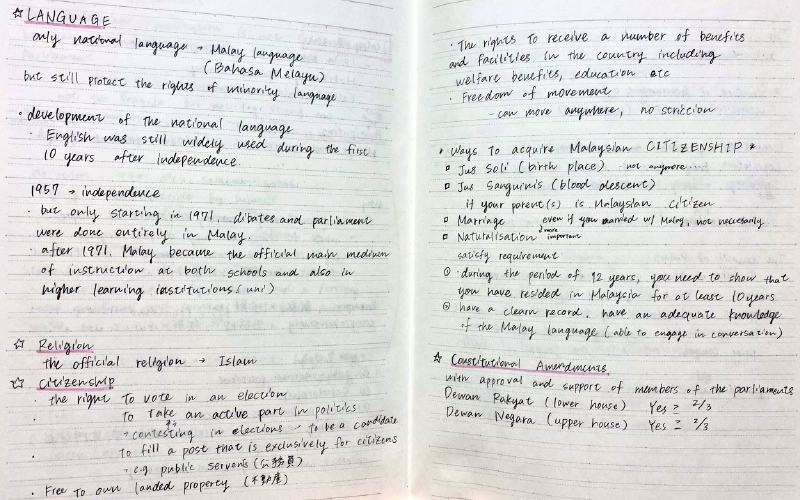 ☆ LANGUAGE
only national language → Malay language
(Bahasa Melayu)
but still protect the rights of minority language
• development of the national language
English was still widely used during the first
10 years after independence.
1957 → independence
· but only starting in 1971, dibates and parliament
were done entirely in Malay.
· after 1971, Malay became the official main medium
of instruction at both schools and also in
higher learning institutions (uni)
☆ Religion
the official religion → Islam
☆ Citizenship
· the right to vote in an election
to take an active part in politics
→ contesting in elections → to be a candidate
to fill a post that is exclusively for citizens
→ e.g public servants (公務員)
· Free to own landed property (不動産)
· The rights to receive a number of benefits
and facilities in the country including
welfare benefits, education etc
· Freedom of movement
- can move anywhere, no striction
* Ways to acquire Malaysian CITIZENSHIP *
▫ Jus Soli (birth place) - not anymore...
▫ Jus Sanguinis (blood descent)
if your parent(s) is Malaysian citizen
▫ Marriage even if you married w/ Malay, not necessarily
▫ Naturalisation more important
satisfy requirement
① during the period of 12 years, you need to show that
you have resided in Malaysia for at least 10 years
② have a clearn record, have an adequate knowledge
of the Malay language (able to engage in conversation)
☆ Constitutional Amendments
with approval and support of members of the parliaments
Dewan Rakyat (lower house) Yes ≥ 2/3
Dewan Negara (upper house) Yes ≥ 2/3